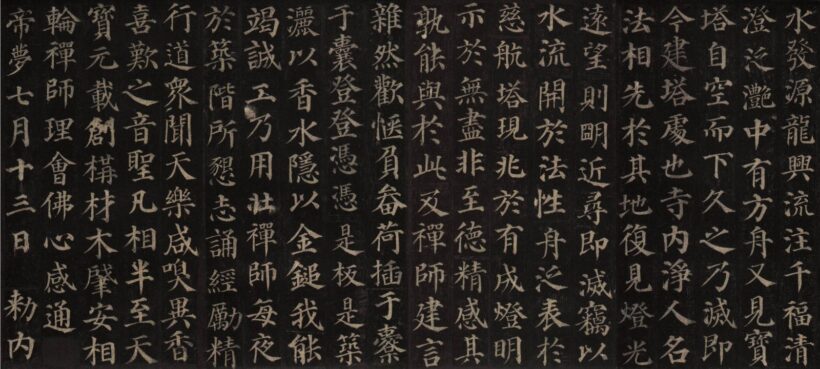 水發源龍興流注千福清
澄泛灧中有方舟又見寶
塔自空而下久之乃滅即
今建塔處也寺內淨人名
法相先於其地復見燈光
遠望則明近尋即滅竊以
水流開於法性舟泛表於
慈航塔現兆於有成燈明
示於無盡非至德精感其
孰能與於此及禪師建言
雜然歡愜負畚荷插于橐
于囊登登憑憑是板是築
灑以香水隱以金鎚我能
竭誠工乃用壯禪師每夜
於築階所懇志誦經勵精
行道眾聞天樂咸嗅異香
喜歎之音聖凡相半至天
寶元載創構材木肇安相
輪禪師理會佛心感通
帝夢七月十三日 勅內